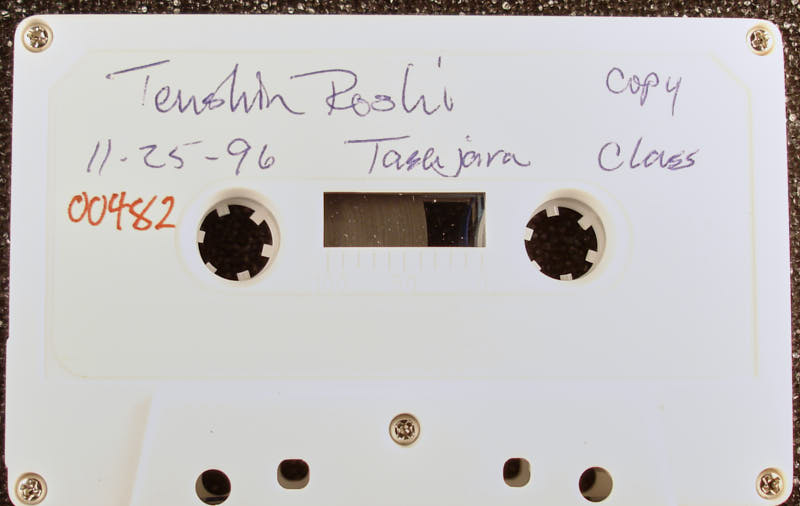 Tenshin Roshi Copy
11-25-96 Tassajara Class
00482